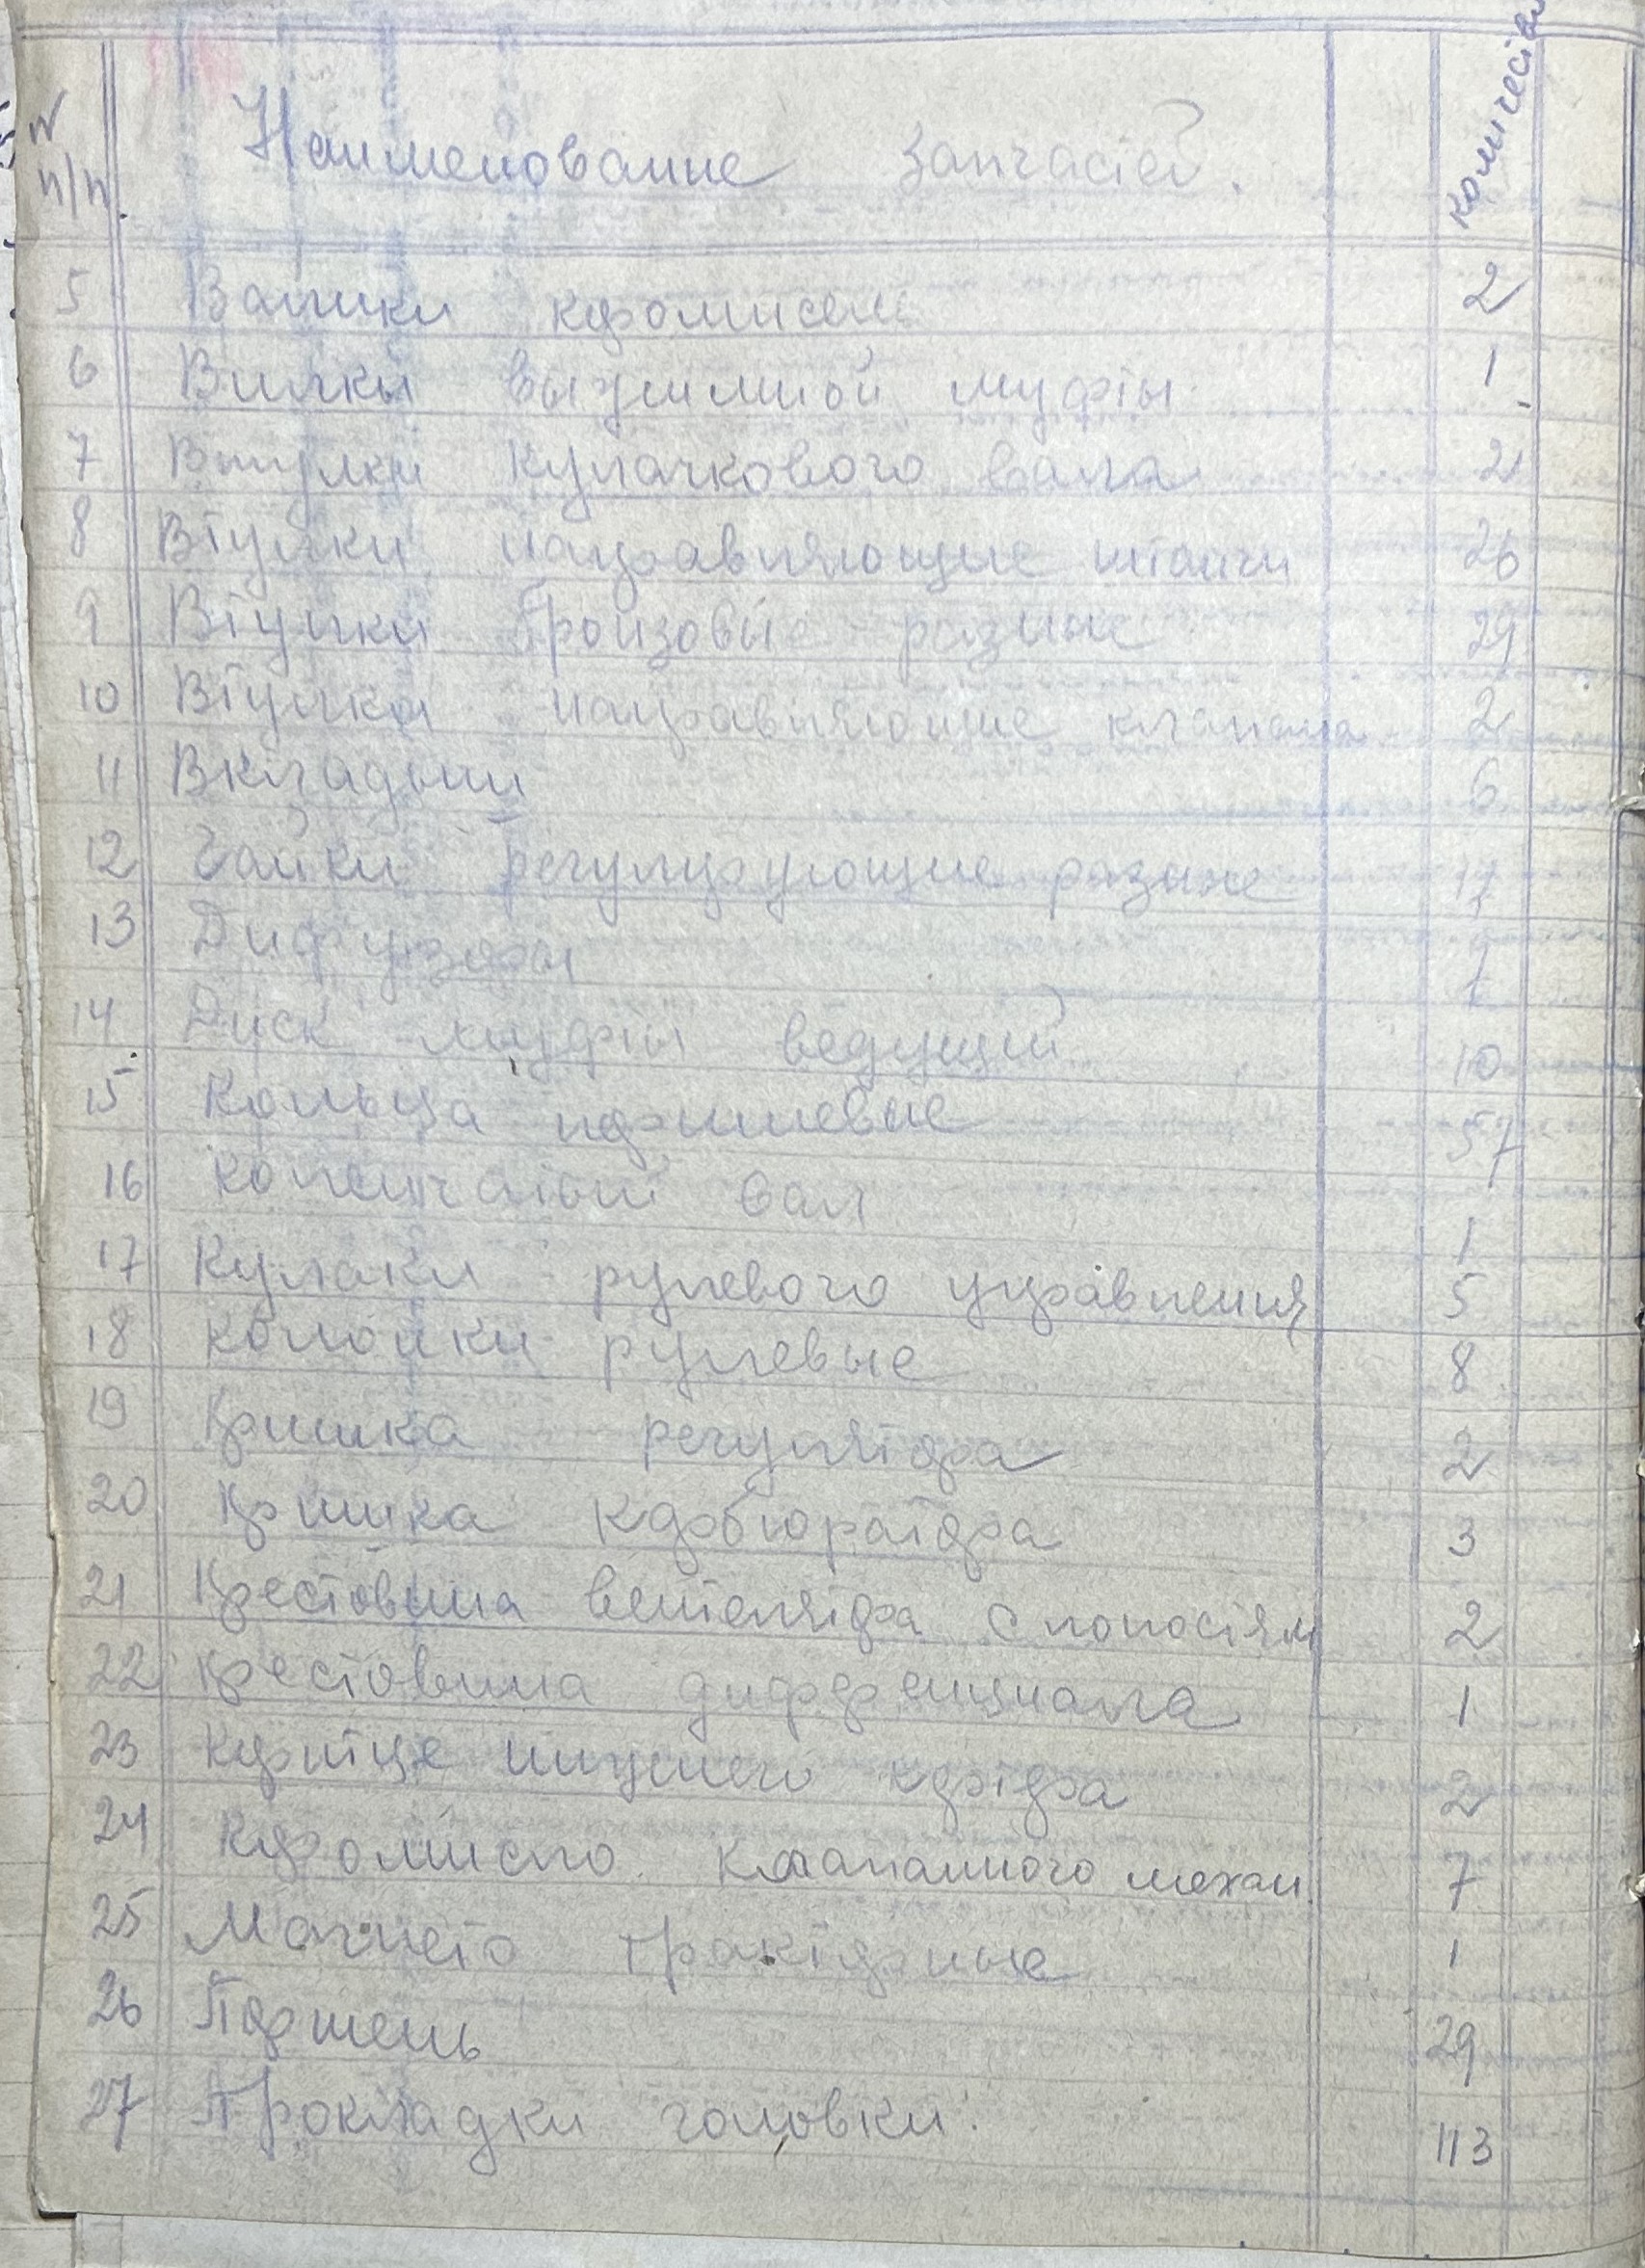 N п/п. Наименование запчастей. Количество
5 Валики коромысел 2
6 Вилки выжимной муфты 1
7 Втулки кулачкового вала 2
8 Втулки направляющие штанги 26
9 Втулки бронзовые разные 29
10 Втулка направляющие клапана 2
11 Вкладыши 6
12 Гайки регулирующие разные
13 Дифузоры
14 Диск муфты ведущий 10
15 Кольца поршневые 57
16 Коленчатый вал 1
17 Кулаки рулевого управления 5
18 Колонки рулевые 8
19 Кришка регулятора 2
20 Кришка карбюратора 3
21 Крестовина вентелятора с лопостям 2
22 Крестовина дифференциала 1
23 нижнего картера 2
24 Коромысло клапанного механ. 7
25 Магнето тракторные 1
26 Поршень 29
27 Прокладки головки. 113